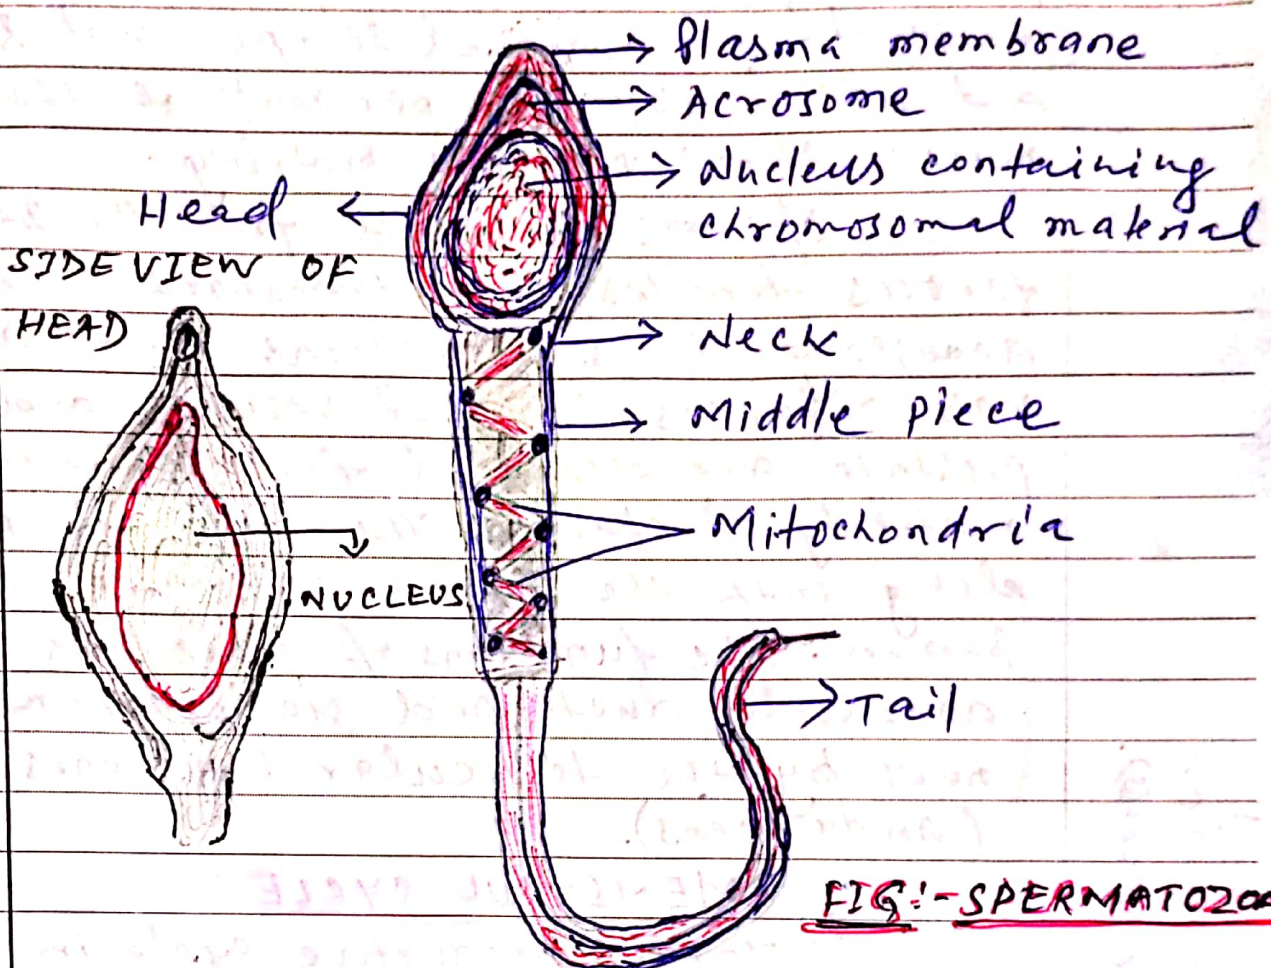 Plasma membrane
Acrosome
Nucleus containing
chromosomal material
Head
SIDE VIEW OF
HEAD
Neck
Middle piece
Mitochondria
NUCLEUS
Tail
FIG:- SPERMATOZOA